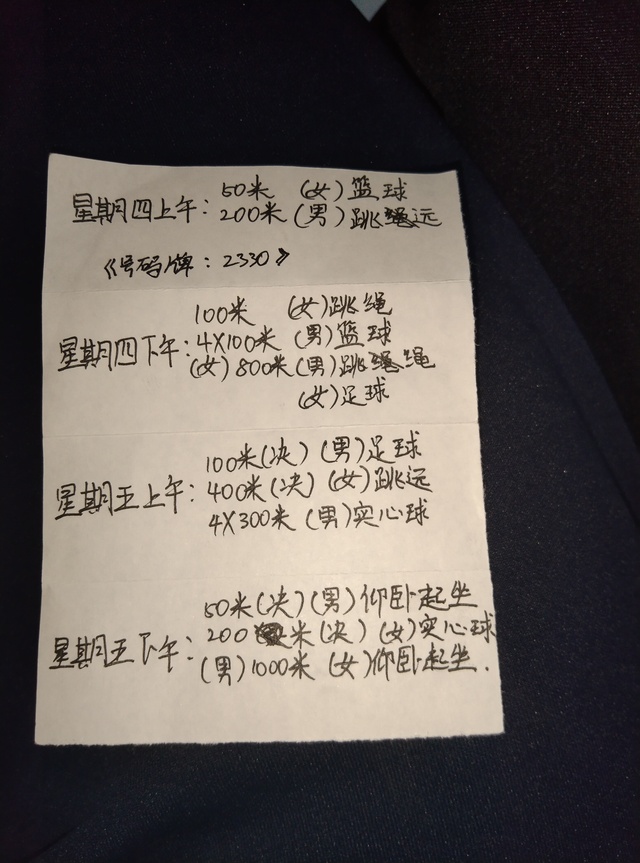 50米 (女)篮球
星期四上午: 200米(男)跳绳远
《号码牌: 2330》
100米 (女)跳绳
星期四下午: 4X100米 (男)篮球
(女)800米(男)跳绳绳
(女)足球
100米(决) (男)足球
星期五上午: 400米(决) (女)跳远
4X300米 (男)实心球
50米(决)(男)仰卧起坐
星期五下午: 200米(决) (女)实心球
(男)1000米 (女)仰卧起坐.